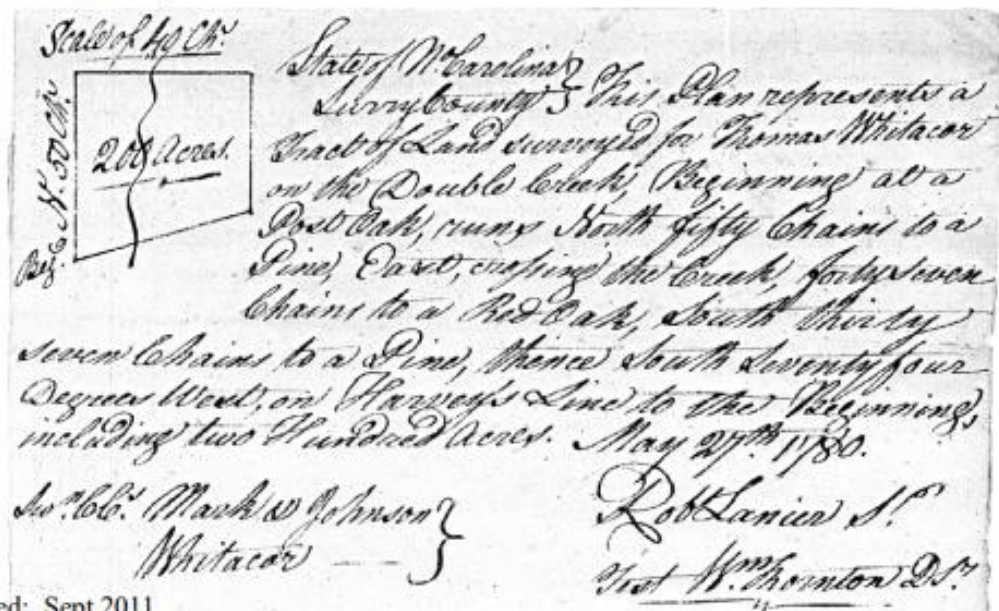 Scale of 40 Chs.
N. 50 Chs.
200 Acres.
Beg.
State of No. Carolina }
Surry County } This Plan represents a
Tract of Land surveyed for Thomas Whitacor
on the Double Creek, Beginning at a
Post Oak, runs North fifty Chains to a
Pine, East, crossing the Creek, forty seven
Chains to a Red Oak, South thirty
seven Chains to a Pine, thence South Seventy four
Degrees West, on Harveys Line to the Beginning,
including two Hundred Acres. May 27th 1780.
Mark & Johnson }
Whitacor
Rob Lanier Sr.
Test Wm. Thornton DSr.
ed: Sept 2011